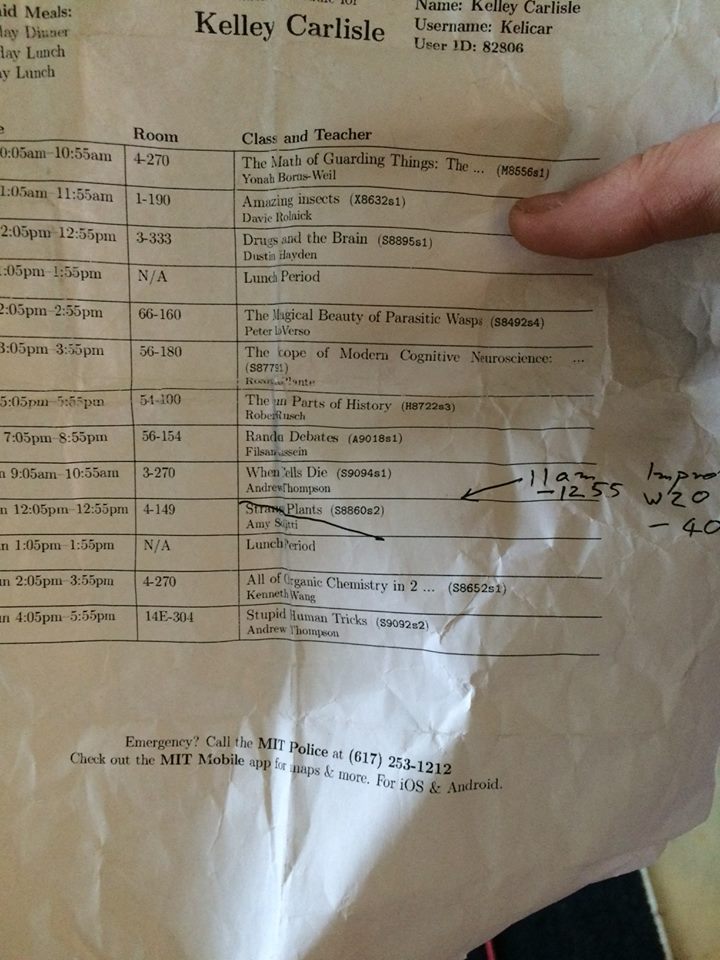 Name: Kelley Carlisle
Kelley Carlisle
Username: Kelicar
User ID: 82806
Meals:
Dinner
Lunch
Lunch
Room Class and Teacher
0:05am–10:55am 4-270 The Math of Guarding Things: The ... (M8556s1)
Yonah Borns-Weil
1:05am–11:55am 1-190 Amazing insects (X8632s1)
Davie Rolnick
2:05pm–12:55pm 3-333 Drugs and the Brain (S8895s1)
Dustin Hayden
:05pm–1:55pm N/A Lunch Period
2:05pm–2:55pm 66-160 The Magical Beauty of Parasitic Wasps (S8492s4)
Peter
3:05pm–3:55pm 56-180 The of Modern Cognitive Neuroscience: ...
5:05pm–5:55pm 54-100 The Parts of History (H8722s3)
7:05pm–8:55pm 56-154 Debates (A9018s1)
n 9:05am–10:55am 3-270 When Cells Die (S9094s1)
Andrew Thompson
11am Impro
-1255 W20
- 40
n 12:05pm–12:55pm 4-149 Strange Plants (S8860s2)
Amy
n 1:05pm–1:55pm N/A Lunch Period
un 2:05pm–3:55pm 4-270 All of Organic Chemistry in 2 ... (S8652s1)
Kenneth Wang
un 4:05pm–5:55pm 14E-304 Stupid Human Tricks (S9092s2)
Andrew Thompson
Emergency? Call the MIT Police at (617) 253-1212
Check out the MIT Mobile app for maps & more. For iOS & Android.